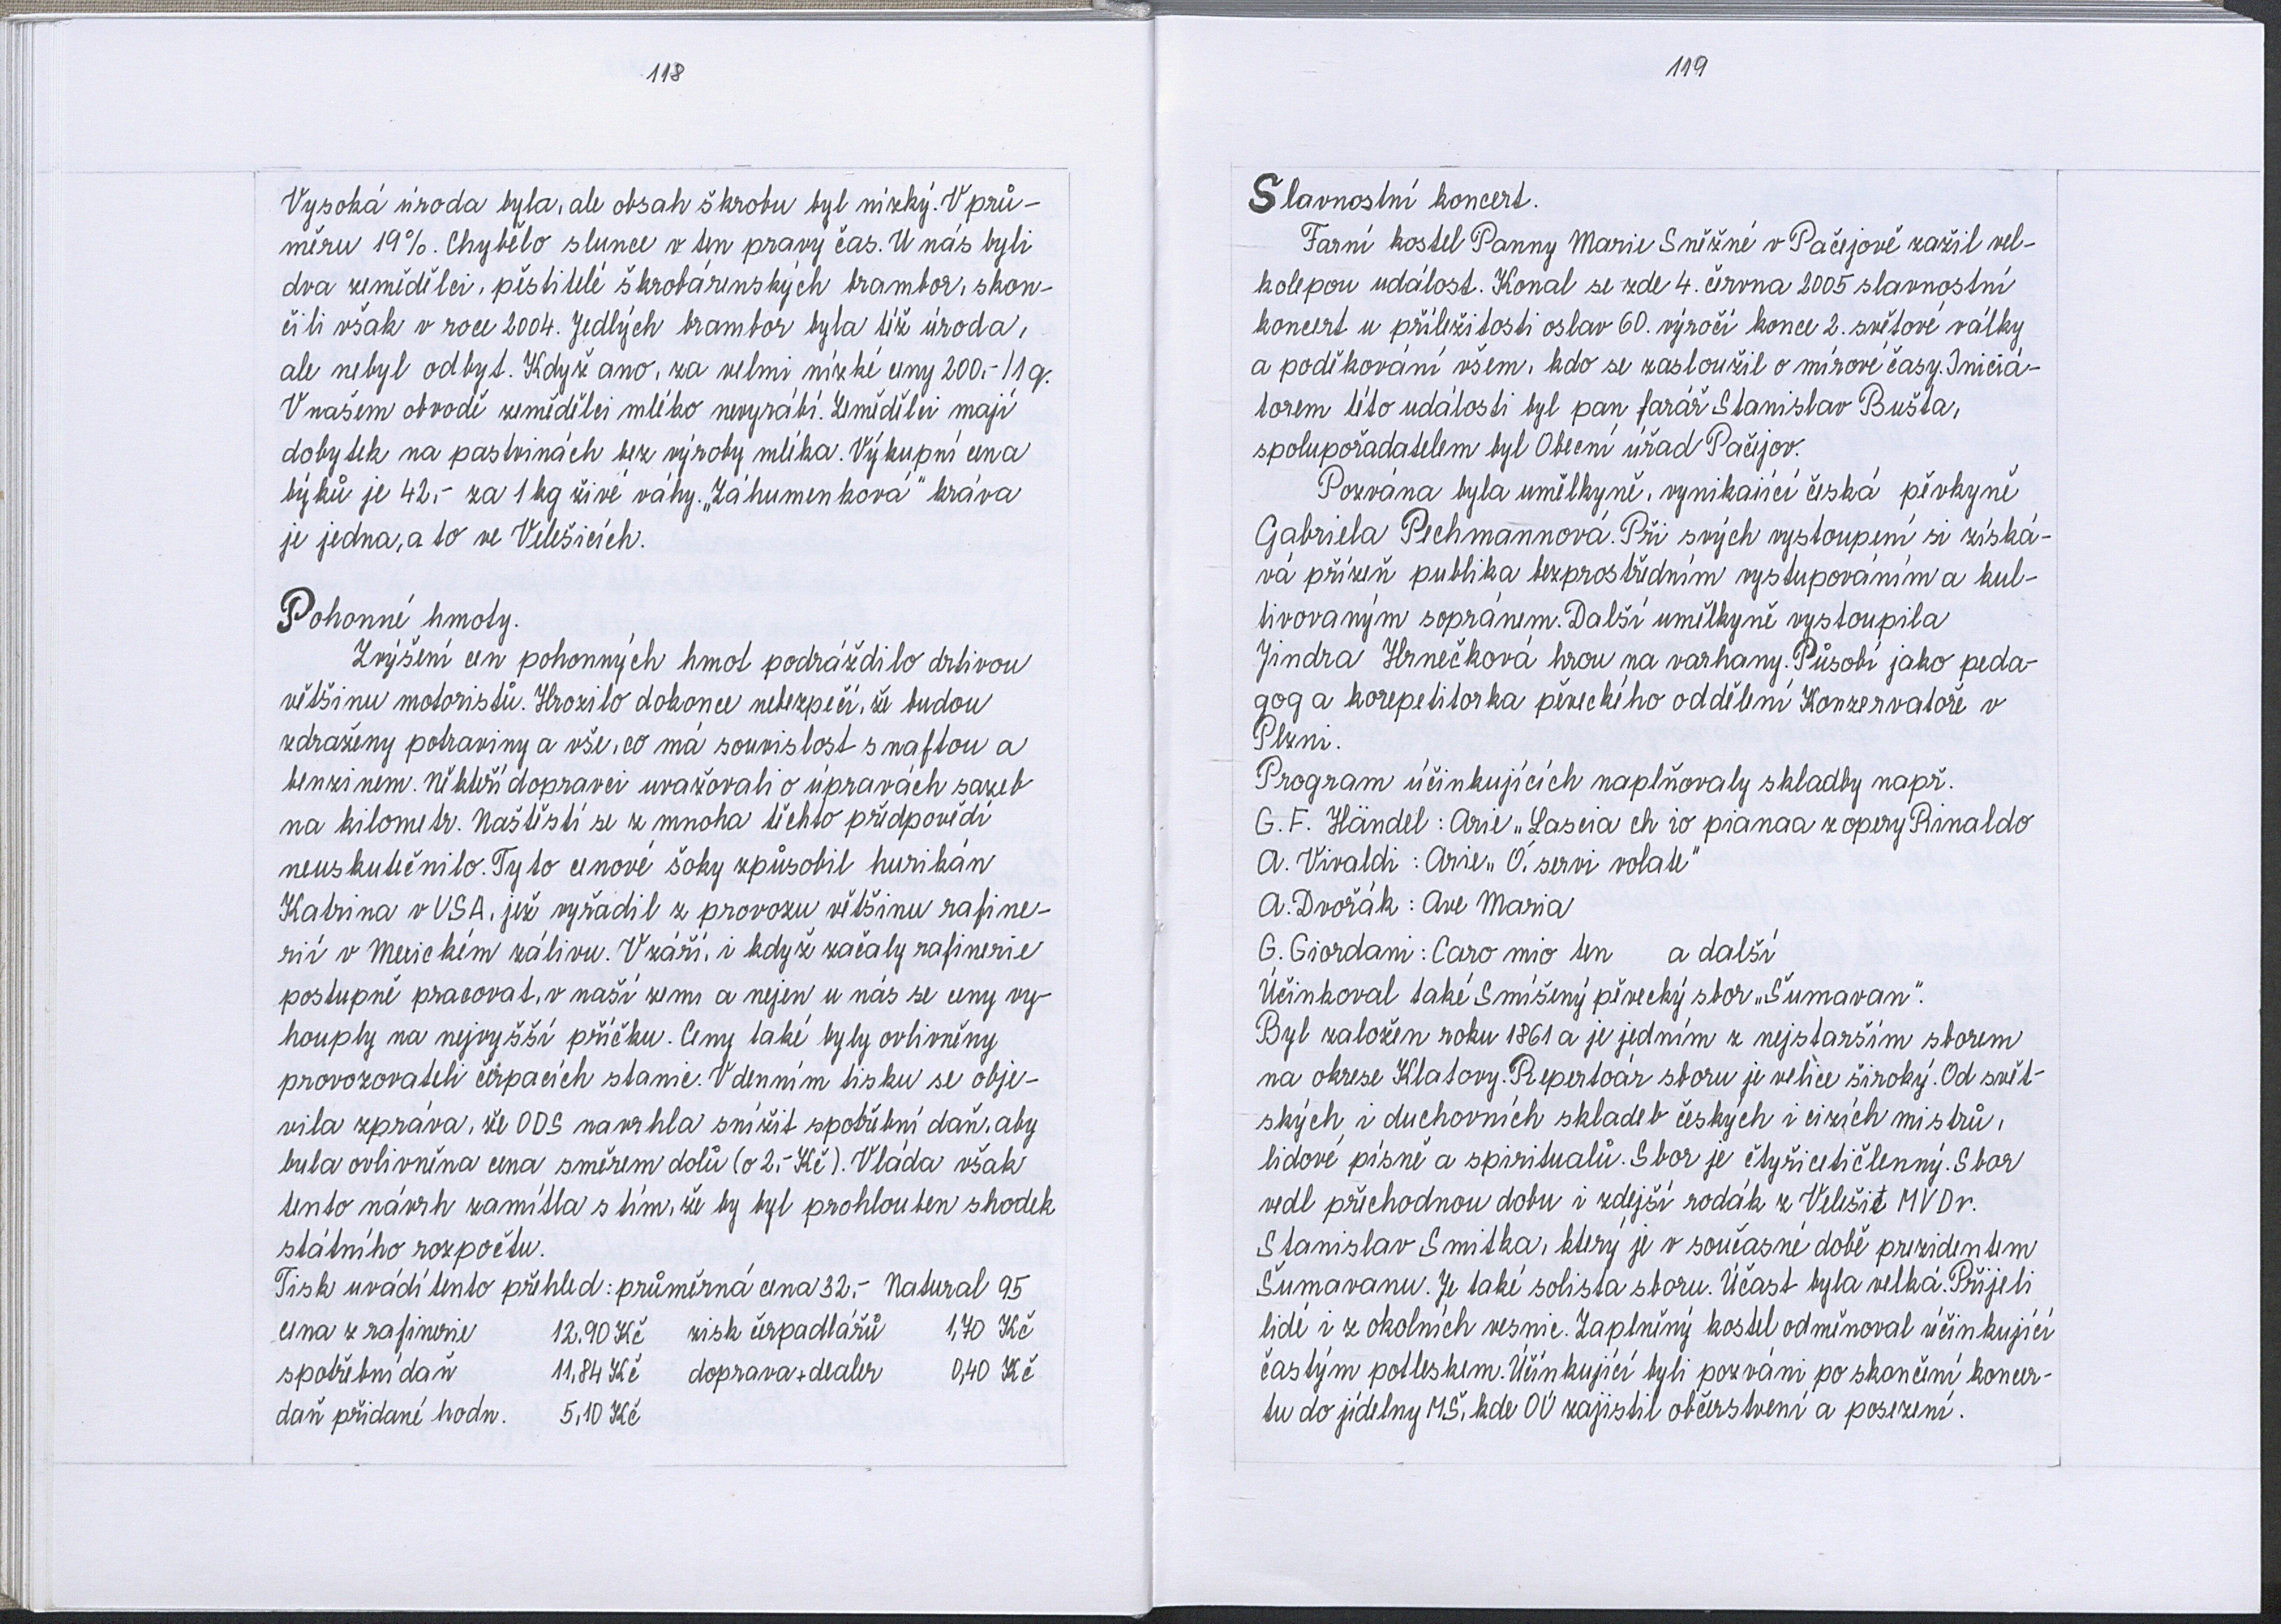 118
Vysoká úroda byla, ale obsah škrobu byl nízký. V prů-
měru 19%. Chybělo slunce v ten pravý čas. U nás byli
dva zemědělci, pěstitelé škrobárenských brambor, skon-
čili však v roce 2004. Jedlých brambor byla též úroda,
ale nebyl odbyt. Když ano, za velmi nízké ceny 200.-/1 q.
V našem obvodě zemědělci mléko nevyrábí. Zemědělci mají
dobytek na pastvinách bez výroby mléka. Výkupní cena
býků je 42.- za 1 kg živé váhy. „Záhumenková" kráva
je jedna, a to ve Velešicích.
Pohonné hmoty.
Zvýšení cen pohonných hmot podráždilo drtivou
většinu motoristů. Hrozilo dokonce nebezpečí, že budou
zdraženy potraviny a vše, co má souvislost s naftou a
benzinem. Někteří dopravci uvažovali o úpravách sazeb
na kilometr. Naštěstí se z mnoha těchto předpovědí
neuskutečnilo. Tyto cenové šoky způsobil hurikán
Katrina v USA, jež vyřadil z provozu většinu rafine-
rií v Mexickém zálivu. V září, i když začaly rafinerie
postupně pracovat, v naší zemi a nejen u nás se ceny vy-
houply na nejvyšší příčku. Ceny také byly ovlivněny
provozovateli čerpacích stanic. V denním tisku se obje-
vila zpráva, že ODS navrhla snížit spotřební daň, aby
byla ovlivněna cena směrem dolů (o 2.- Kč). Vláda však
tento návrh zamítla s tím, že by byl prohlouben shodek
státního rozpočtu.
Tisk uvádí tento přehled: průměrná cena 32.- Natural 95
cena z rafinerie 12.90 Kč zisk čerpadlářů 1,70 Kč
spotřební daň 11,84 Kč doprava + dealer 0,40 Kč
daň přidané hodn. 5,10 Kč
119
Slavnostní koncert.
Farní kostel Panny Marie Sněžné v Pačejově zažil vel-
kolepou událost. Konal se zde 4. června 2005 slavnostní
koncert u příležitosti oslav 60. výročí konce 2. světové války
a poděkování všem, kdo se zasloužil o mírové časy. Iniciá-
torem této události byl pan farář Stanislav Bušta,
spolupořadatelem byl Obecní úřad Pačejov.
Pozvána byla umělkyně, vynikající česká pěvkyně
Gabriela Pechmannová. Při svých vystoupení si získá-
vá přízeň publika bezprostředním vystupováním a kul-
tivovaným sopránem. Další umělkyně vystoupila
Jindra Hrnečková hrou na varhany. Působí jako peda-
gog a korepetitorka pěveckého oddělení Konzervatoře v
Plzni.
Program účinkujících naplňovaly skladby např.
G. F. Händel : Arie „Lascia ch io pianaa z opery Rinaldo
A. Vivaldi : Arie „ O, servi volate"
A. Dvořák : Ave Maria
G. Giordani : Caro mio ten a další
Účinkoval také Smíšený pěvecký sbor „Šumavan".
Byl založen roku 1861 a je jedním z nejstarším sborem
na okrese Klatovy. Repertoár sboru je velice široký. Od svět-
ských i duchovních skladeb českých i cizích mistrů,
lidové písně a spirituálů. Sbor je čtyřicetičlenný. Sbor
vedl přechodnou dobu i zdejší rodák z Velešic MVDr.
Stanislav Smitka, který je v současné době prezidentem
Šumavanu. Je také solista sboru. Účast byla velká. Přijeli
lidé i z okolních vesnic. Zaplněný kostel odměňoval účinkující
častým potleskem. Účinkující byli pozváni po skončení koncer-
tu do jídelny MŠ, kde OÚ zajistil občerstvení a posezení.